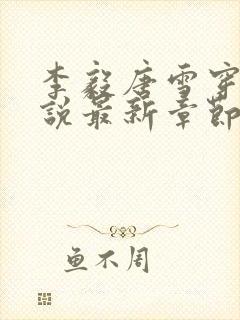 李毅唐雪穿
说最新章节
鱼不周